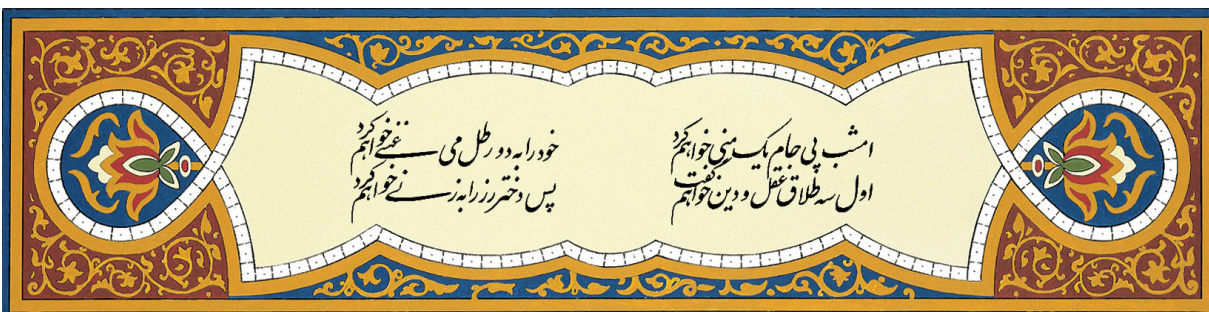 امشب پی جام یک منی خواهم کرد خود را به دو رطل می غنی خواهم کرد
اول سه طلاق عقل و دین خواهم گفت پس دختر رز را به زنی خواهم کرد